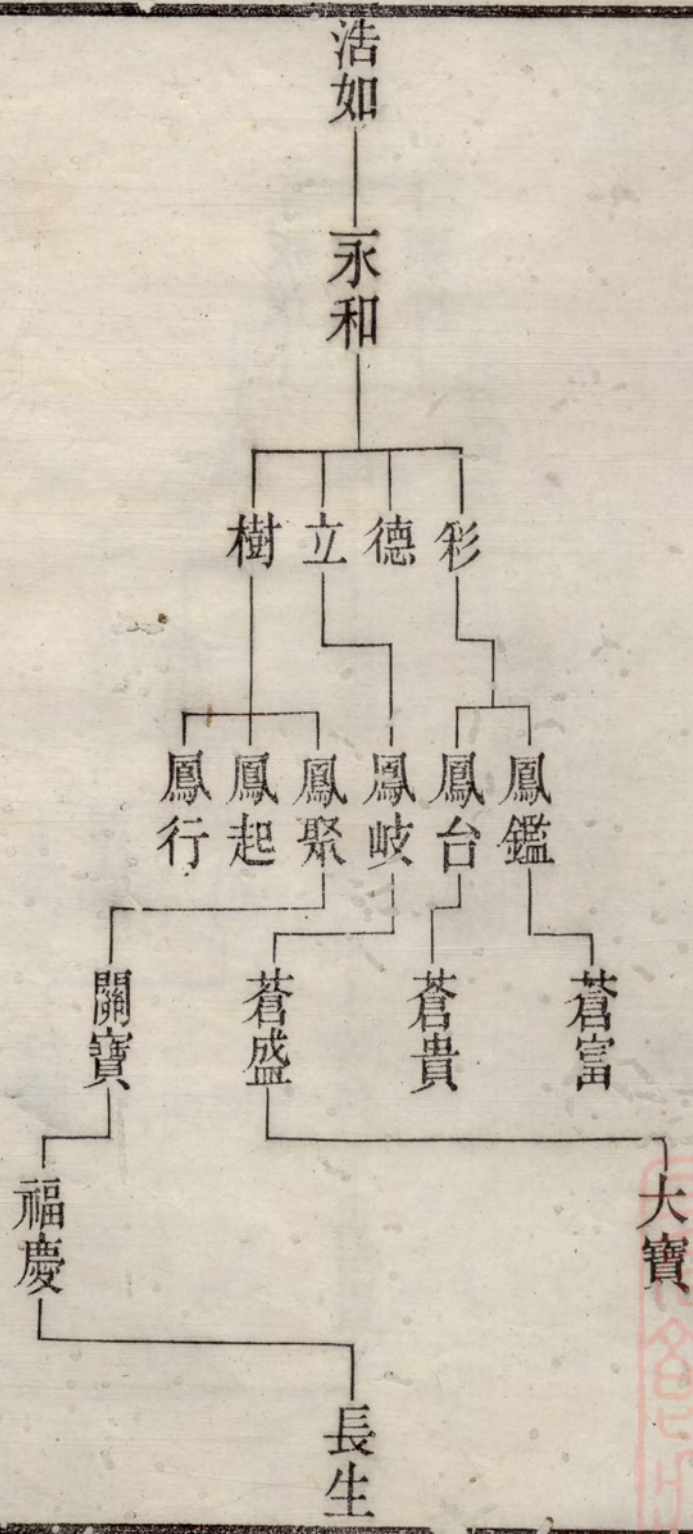 浩如
永和
彩
德
立
樹
鳳鑑
鳳台
鳳岐
鳳聚
鳳起
鳳行
蒼富
蒼貴
蒼盛
關寶
大寶
福慶
長生